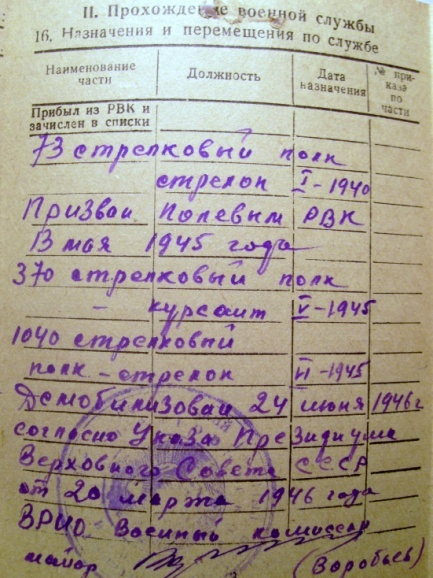 II. Прохождение военной службы
16. Назначения и перемещения по службе
Наименование части
Должность
Дата назначения
№ приказа по части
Прибыл из РВК и зачислен в списки
73 стрелковый полк
стрелок I-1940
Призван Полевым РВК
В мая 1945 года
370 стрелковый полк
- курсант V-1945
1040 стрелковый
полк - стрелок VI-1945
Демобилизован 24 июня 1946г
согласно Указа Президиума
Верховного Совета СССР
от 20 марта 1946 года
ВРИО Военный комиссар
майор (Воробьев)